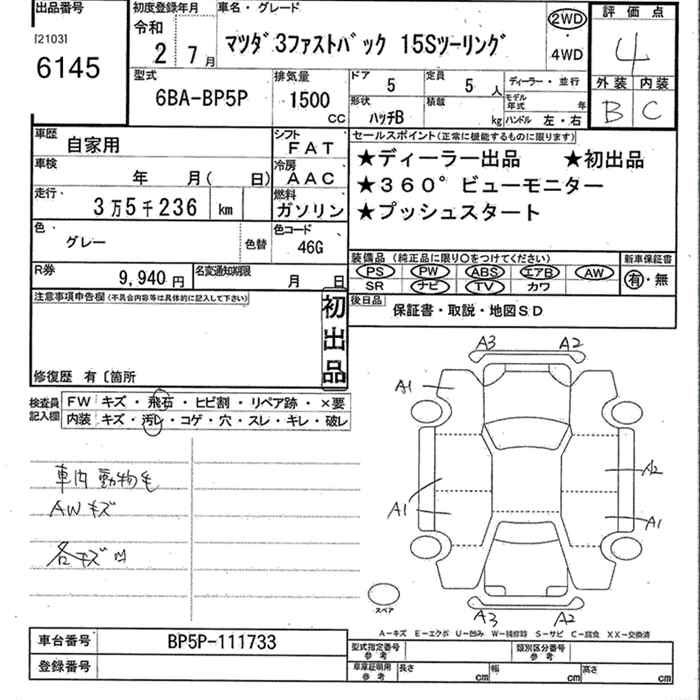 出品番号
[2103]
6145
初度登録年月
令和
2 7月
車名・グレード
マツダ3ファストバック 15Sツーリング
2WD
・
4WD
評価点
4
外装 内装
B C
型式
6BA-BP5P
排気量
1500
CC
ドア
5
定員
5 人
形状
ハッチB
積載
kg
ディーラー・並行
モデル年式 年
ハンドル 左・右
車歴
自家用
シフト
FAT
車検
年 月( 日)
冷房
AAC
走行
3万5千236 km
燃料
ガソリン
色
グレー
色替
色コード
46G
R券
9,940 円
名変通知期限
月 日
セールスポイント(正常に機能するものに限ります)
★ディーラー出品 ★初出品
★360°ビューモニター
★プッシュスタート
装備品 (純正品に限り○をつけてください)
PS PW ABS エアB AW
SR ナビ TV カワ
新車保証書
有・無
後日品
保証書・取説・地図SD
注意事項申告欄(不具合内容等は具体的に記入して下さい)
初出品
修復歴 有〔箇所
検査員記入欄
FW キズ・飛石・ヒビ割・リペア跡・×要
内装 キズ・汚れ・コゲ・穴・スレ・キレ・破レ
車内動物毛
AWキズ
各キズ凹
A3 A2
A1
A2
A1
A1
A3 A2
スペア
A-キズ E-エクボ U-凹み W-補修跡 S-サビ C-腐食 XX-交換済
車台番号
BP5P-111733
登録番号
型式指定番号
参考
類別区分番号
参考
車庫証明用
参考
長さ cm
幅 cm
高さ cm